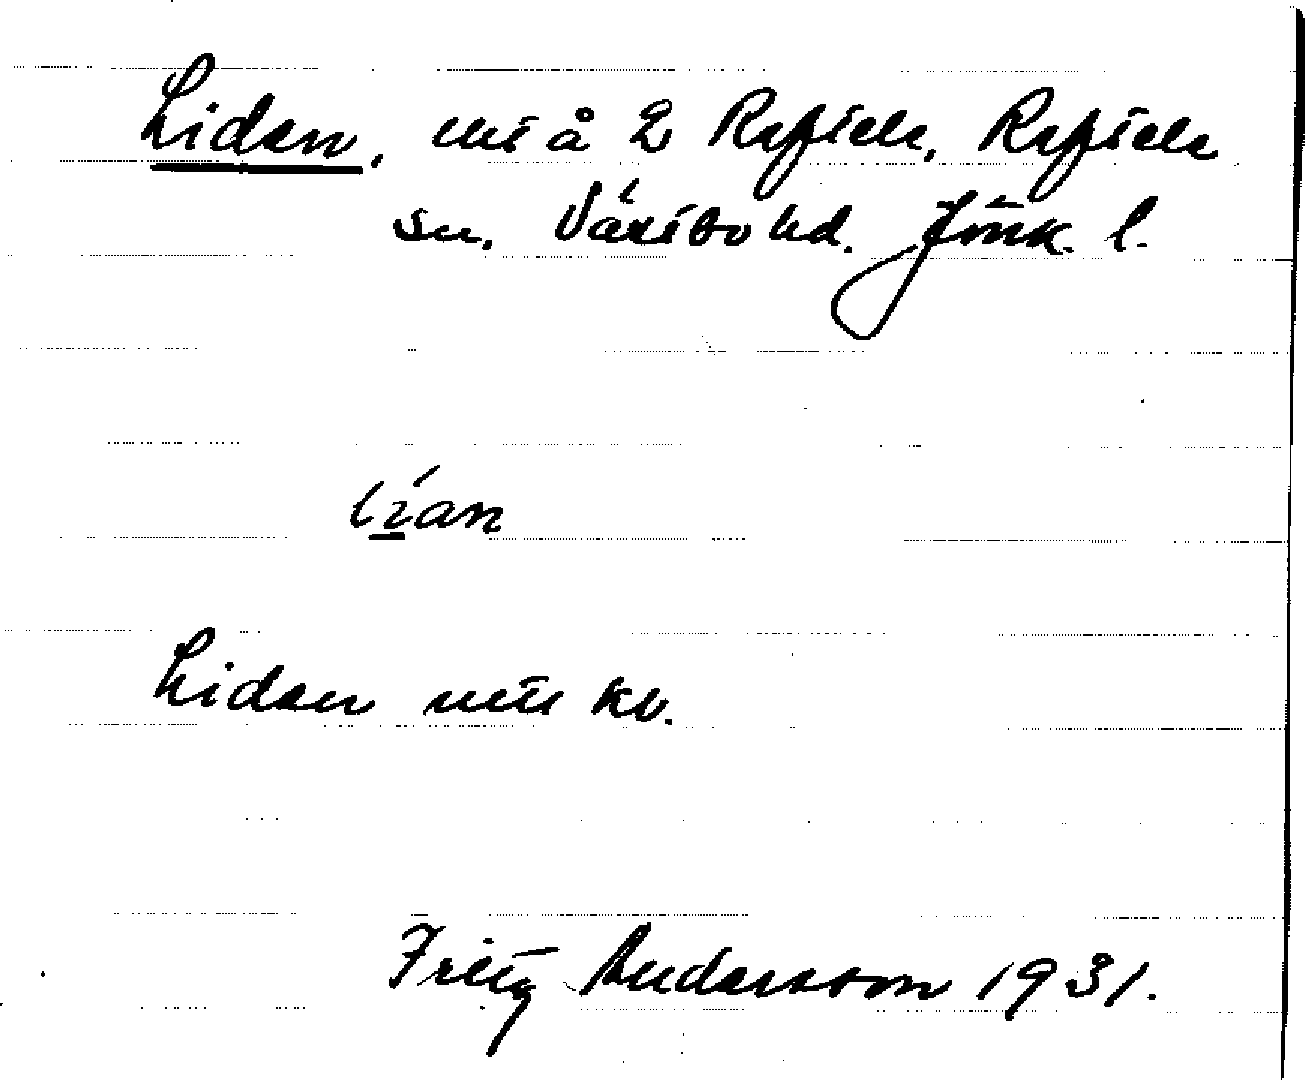 Lidan, å 2 Reftele, Reftele
sn. Västbo hd. Jönk. l.
lían
Lidan kv.
Fritz Andersson 1931.